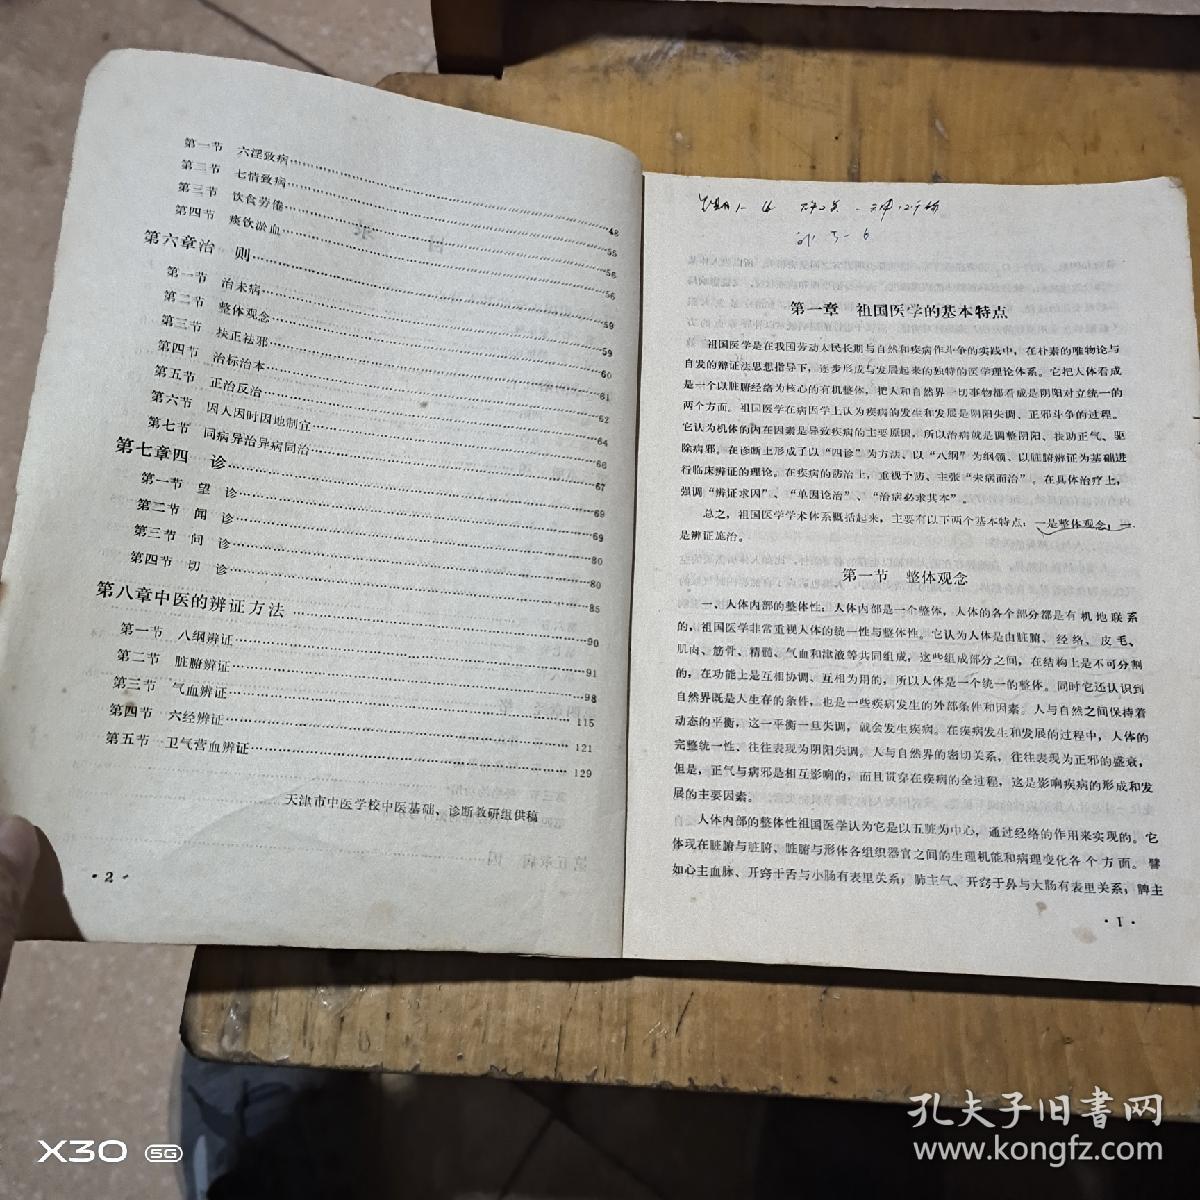 第一节 六淫致病
第三节 七情致病
第三节 饮食劳倦 48
第四节 痰饮淤血 55
第六章治 则 56
第一节 治未病 56
第二节 整体观念 59
第三节 扶正祛邪 59
第四节 治标治本 60
第五节 正治反治 61
第六节 因人因时因地制宜 62
第七节 同病异治异病同治 64
第七章四 诊 66
第一节 望 诊 67
第二节 闻 诊 69
第三节 问 诊 69
第四节 切 诊 80
80
第八章中医的辨证方法 85
第一节 八纲辨证 90
第二节 脏腑辨证 91
第三节 气血辨证 98
第四节 六经辨证 115
第五节 卫气营血辨证 121
129
天津市中医学校中医基础、诊断教研组供稿
·2·
第一章 祖国医学的基本特点
祖国医学是在我国劳动人民长期与自然和疾病作斗争的实践中，在朴素的唯物论与
自发的辩证法思想指导下，逐步形成与发展起来的独特的医学理论体系。它把人体看成
是一个以脏腑经络为核心的有机整体，把人和自然界一切事物都看成是阴阳对立统一的
两个方面。祖国医学在病因学上认为疾病的发生和发展是阴阳失调、正邪斗争的过程。
它认为机体的内在因素是导致疾病的主要原因，所以治病就是调整阴阳、扶助正气、驱
除病邪，在诊断上形成了以“四诊”为方法、以“八纲”为纲领、以脏腑辨证为基础进
行临床辨证的理论。在疾病的防治上，重视予防、主张“未病而治”，在具体治疗上，
强调“辨证求因”、“单因论治”、“治病必求其本”。
总之，祖国医学学术体系概括起来，主要有以下两个基本特点：一是整体观念；二
是辨证施治。
第一节 整体观念
一、人体内部的整体性：人体内部是一个整体，人体的各个部分都是有机地联系
的，祖国医学非常重视人体的统一性与整体性。它认为人体是由脏腑、经络、皮毛、
肌肉、筋骨、精髓、气血和津液等共同组成，这些组成部分之间，在结构上是不可分割
的，在功能上是互相协调、互相为用的，所以人体是一个统一的整体。同时它还认识到
自然界既是人生存的条件，也是一些疾病发生的外部条件和因素。人与自然之间保持着
动态的平衡，这一平衡一旦失调，就会发生疾病。在疾病发生和发展的过程中，人体的
完整统一性、往往表现为阴阳失调。人与自然界的密切关系，往往表现为正邪的盛衰，
但是，正气与病邪是相互影响的，而且贯穿在疾病的全过程，这是影响疾病的形成和发
展的主要因素。
人体内部的整体性祖国医学认为它是以五脏为中心，通过经络的作用来实现的。它
体现在脏腑与脏腑、脏腑与形体各组织器官之间的生理机能和病理变化各个方面。譬
如心主血脉、开窍于舌与小肠有表里关系；肺主气、开窍于鼻与大肠有表里关系；脾主
·1·
X30 5G
孔夫子旧书网
www.kongfz.com